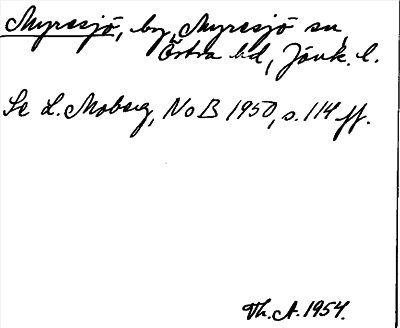 Myresjö, by, Myresjö sn,
Östra hd, Jönk. l.
Se L. Moberg, NoB 1950, s. 114 ff.
Th. A. 1954.